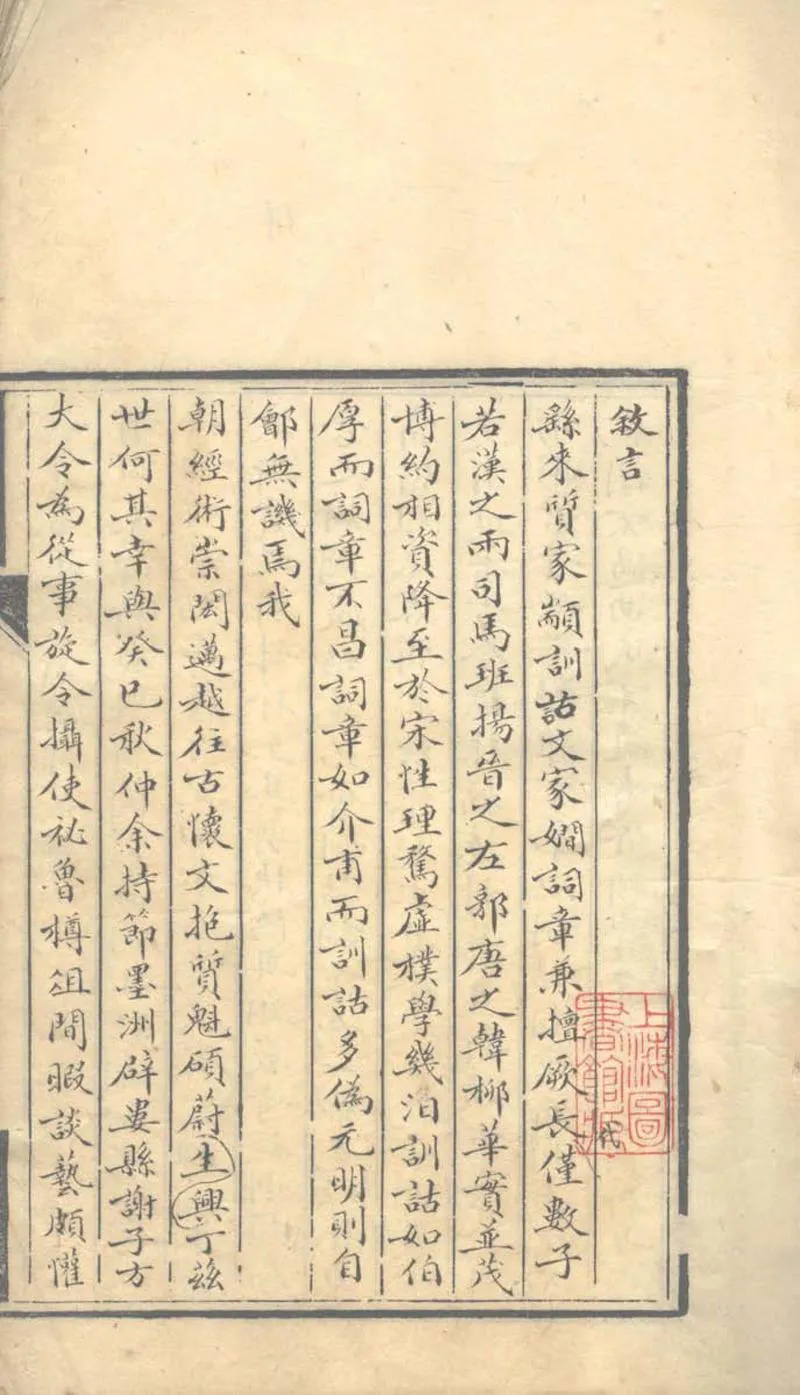 敘言
繇来質家顓訓詁文家嫺詞章兼擅厥長僅數子
若漢之兩司馬班揚晉之左郭唐之韓柳華實並茂
博約相資降至於宋性理騖虛樸學幾汩訓詁如伯
厚而詞章不昌詞章如介甫而訓詁多偽元明則自
鄶無譏焉我
朝經術崇閎邁越往古懷文抱質魁碩蔚生興丁茲
世何其幸與癸巳秋仲余持節墨洲辟婁縣謝子方
大令為從事旋令攝使祕魯樽俎閒暇談藝頗懽
上海圖
書館藏